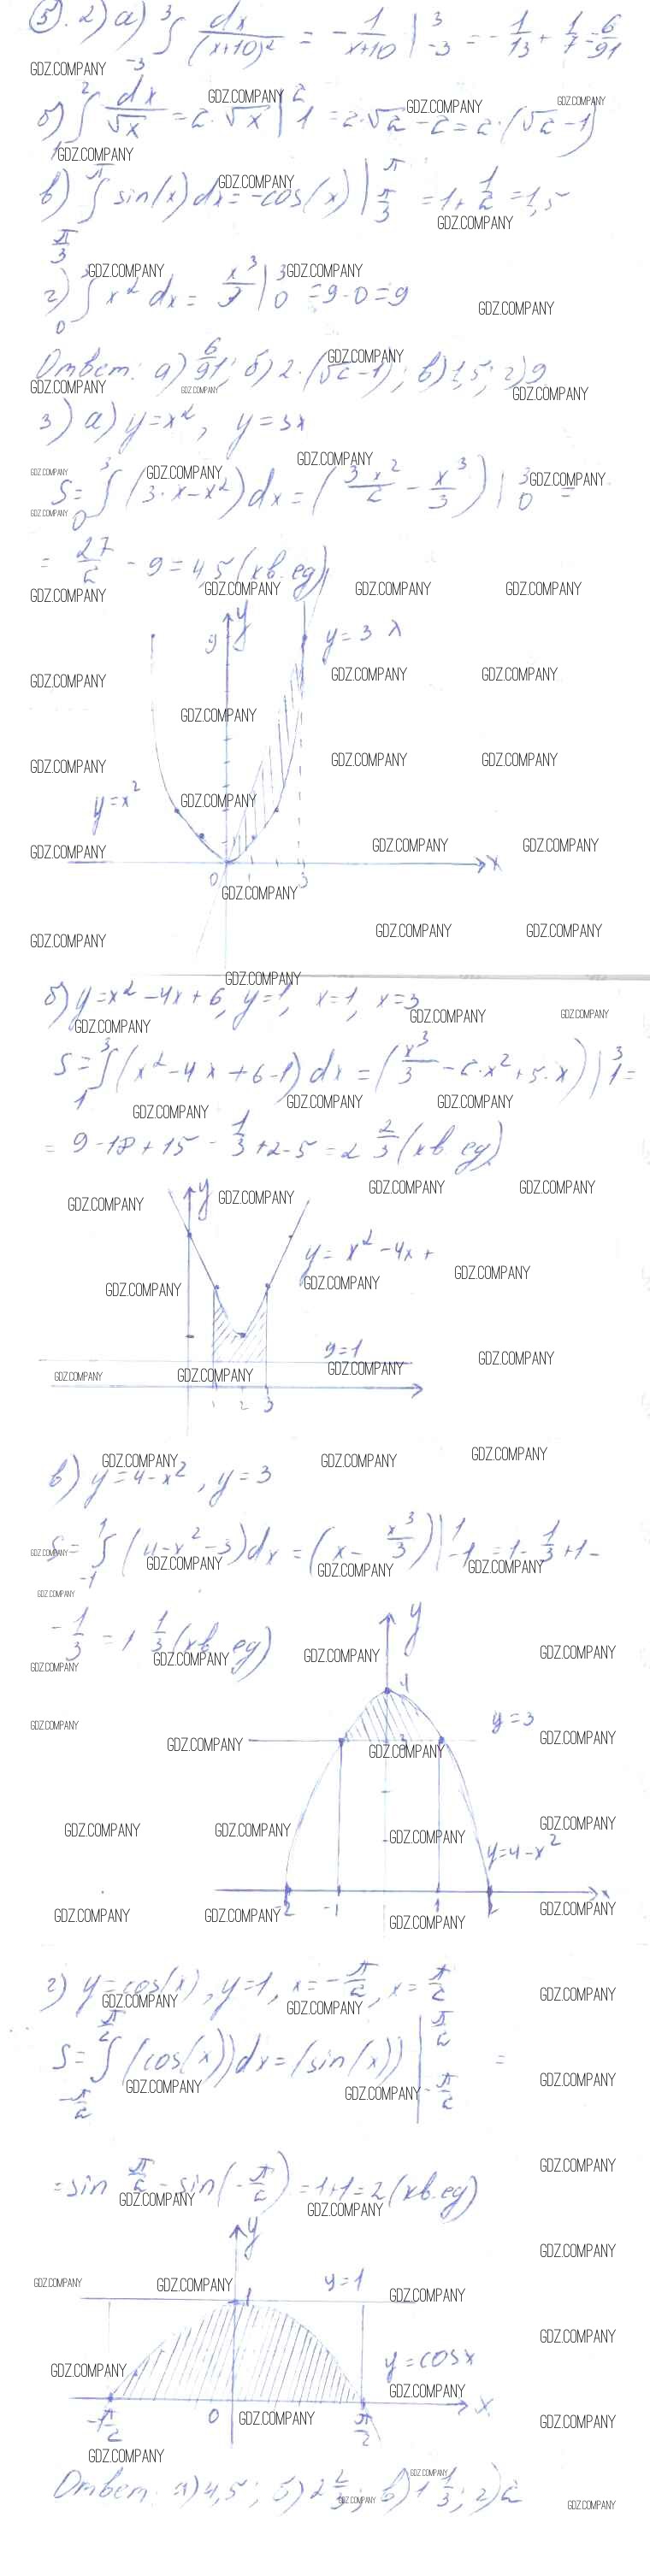 5. 2) а) ∫_{-3}^{3} dx/(x+10)² = -1/(x+10) |_{-3}^{3} = -1/13 + 1/7 = 6/91
б) ∫_{1}^{2} dx/√x = 2·√x |_{1}^{2} = 2·√2 - 2 = 2·(√2 - 1)
в) ∫_{π/3}^{π} sin(x) dx = -cos(x) |_{π/3}^{π} = 1 + 1/2 = 1,5
г) ∫_{0}^{3} x² dx = x³/3 |_{0}^{3} = 9 - 0 = 9
Ответ: а) 6/91; б) 2·(√2 - 1); в) 1,5; г) 9
3) а) y = x², y = 3x
S = ∫_{0}^{3} (3·x - x²) dx = (3x²/2 - x³/3) |_{0}^{3} =
= 27/2 - 9 = 4,5 (кв. ед)
y
9
y = 3x
y = x²
0 3 x
б) y = x² - 4x + 6, y = 1, x = 1, x = 3
S = ∫_{1}^{3} (x² - 4x + 6 - 1) dx = (x³/3 - 2·x² + 5·x) |_{1}^{3} =
= 9 - 18 + 15 - 1/3 + 2 - 5 = 2 2/3 (кв. ед)
y
y = x² - 4x +
y = 1
1 2 3
в) y = 4 - x², y = 3
S = ∫_{-1}^{1} (4 - x² - 3) dx = (x - x³/3) |_{-1}^{1} = 1 - 1/3 + 1 -
- 1/3 = 1 1/3 (кв. ед)
y
4
y = 3
3
y = 4 - x²
-2 -1 1 2 x
г) y = cos(x), y = 1, x = -π/2, x = π/2
S = ∫_{-π/2}^{π/2} (cos(x)) dx = (sin(x)) |_{-π/2}^{π/2} =
= sin π/2 - sin(-π/2) = 1+1 = 2 (кв. ед)
y
1 y = 1
y = cos x
-π/2 0 π/2 x
Ответ: а) 4,5; б) 2 2/3; в) 1 1/3; г) 2
GDZ.COMPANY